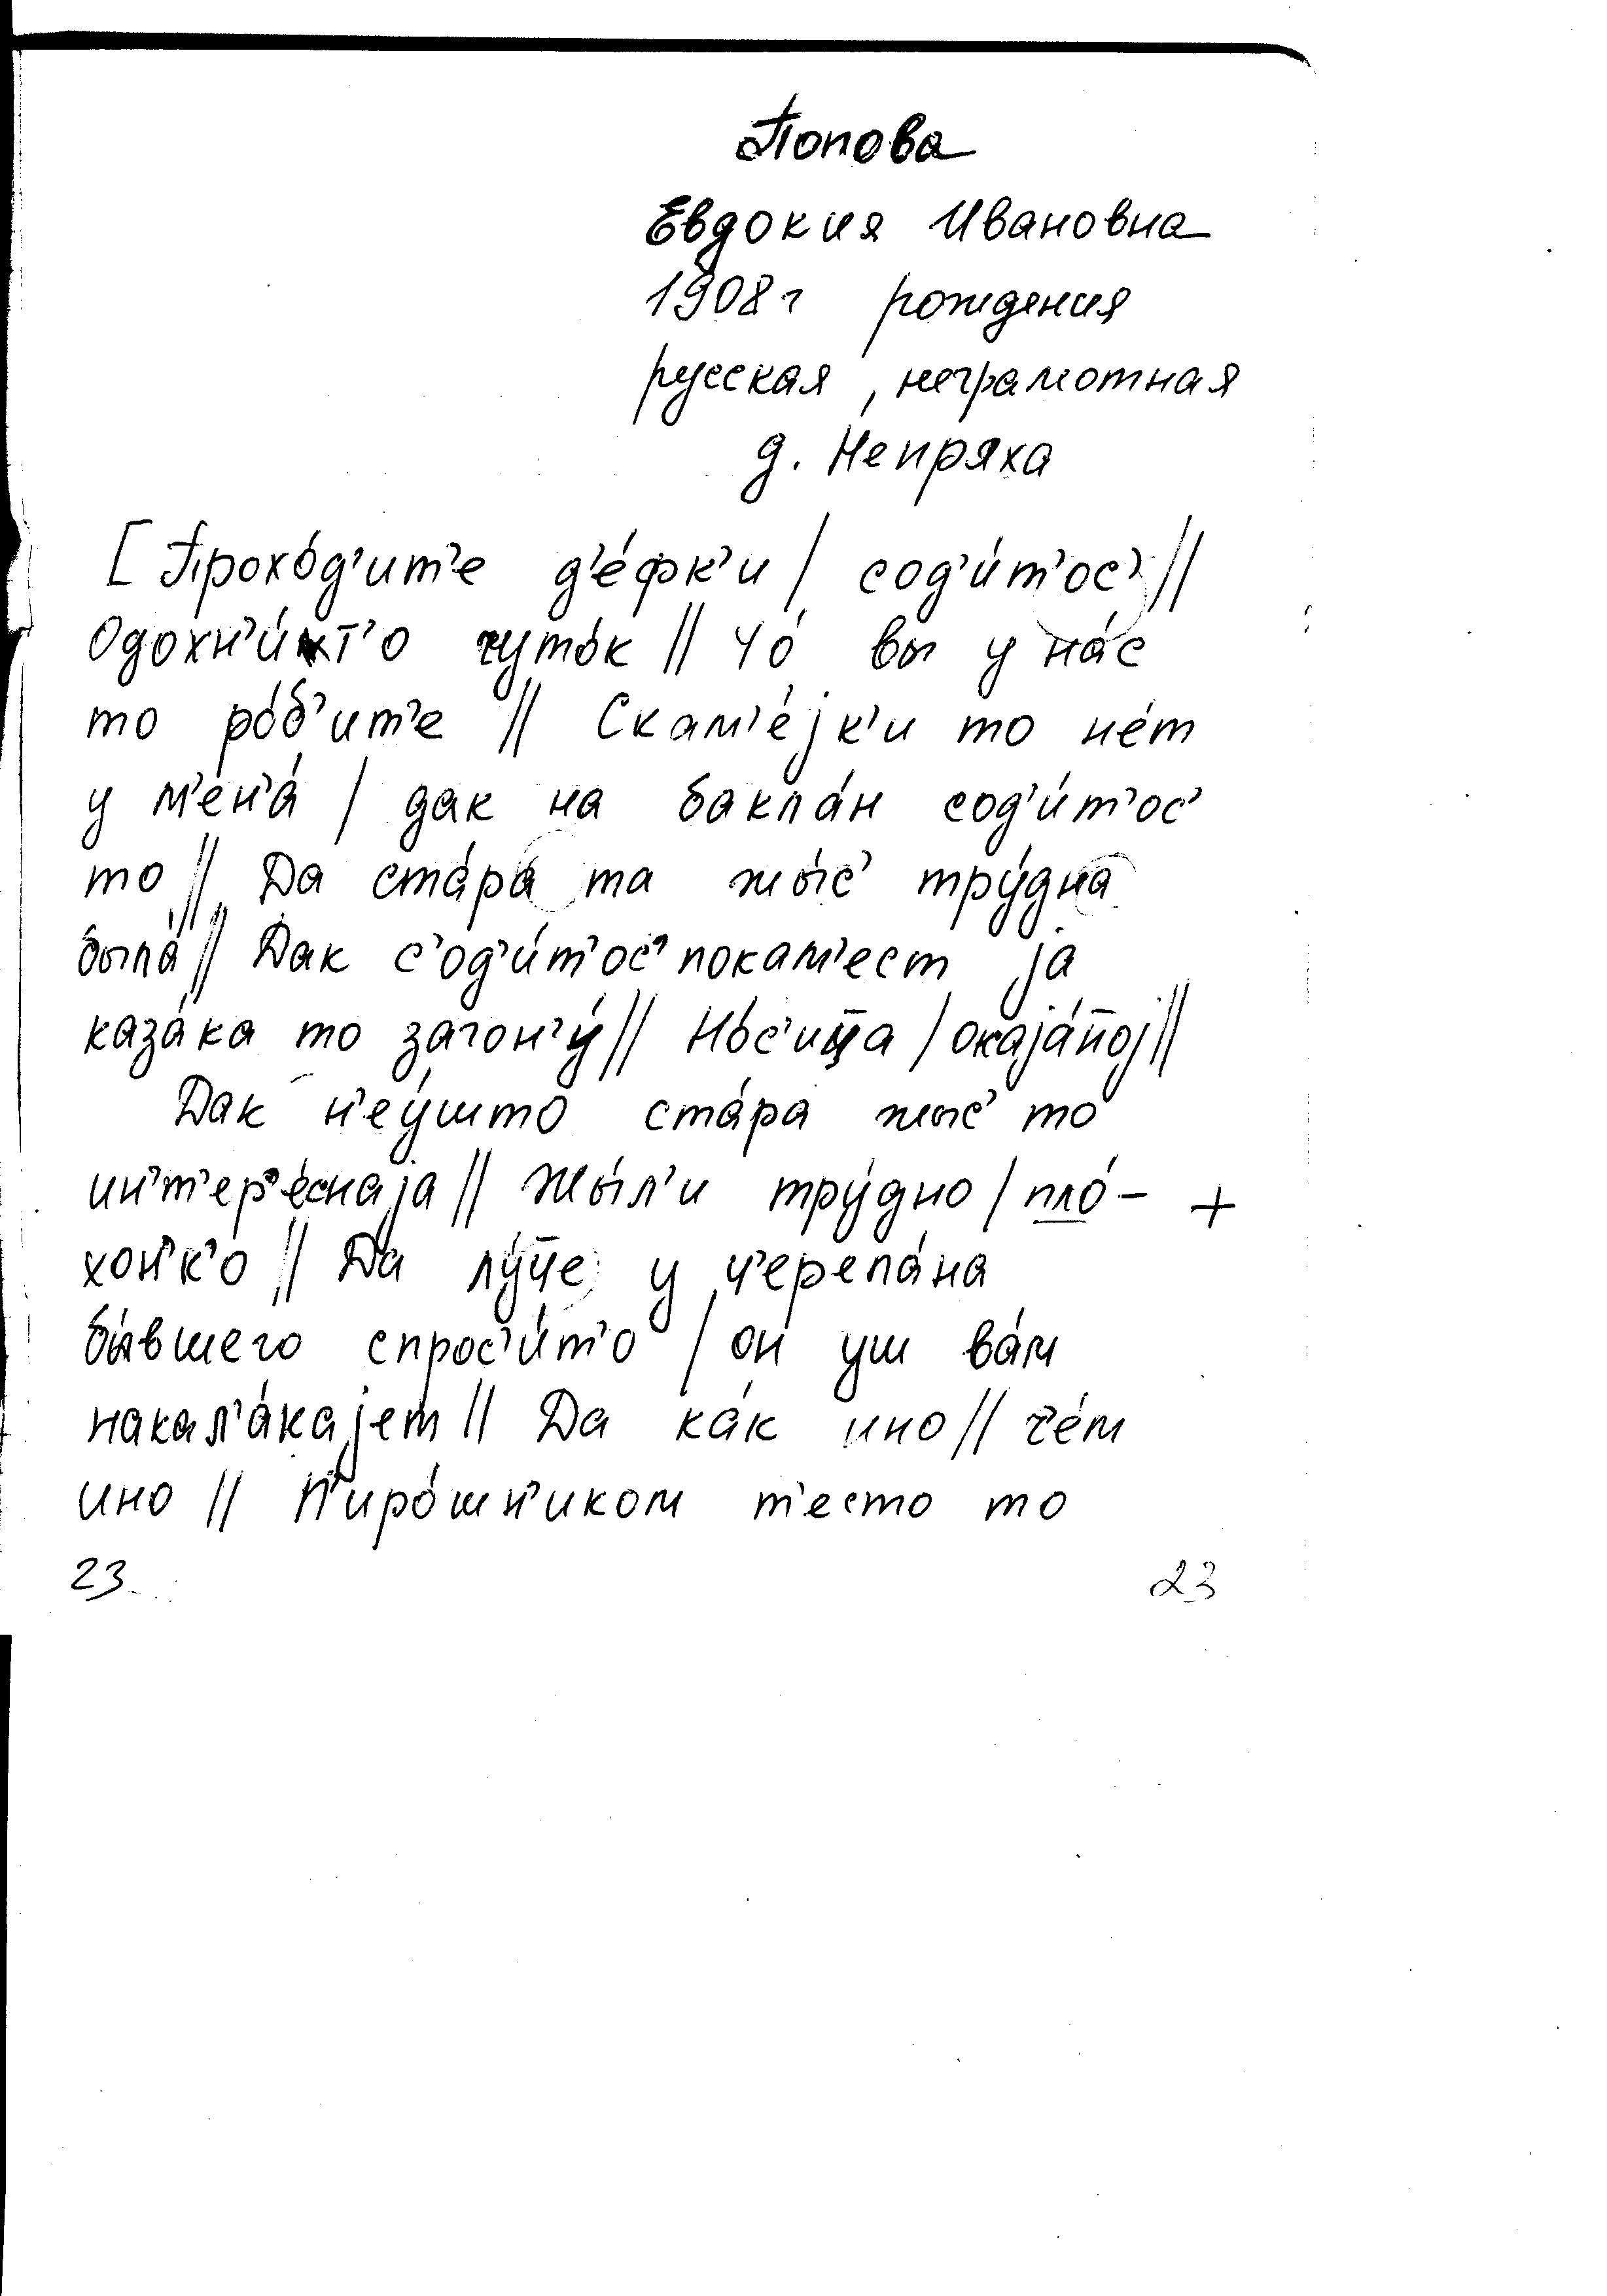 Попова
Евдокия Ивановна
1908г рождения
русская, неграмотная
д. Непряха
[Прохо́д'ит'е д'е́фк'и / сод'и́т'ос' //
Одохн'и́т'о чуто́к // Чо́ вы у на́с
то ро́б'ит'е // Скам'е́jк'и то не́т
у м'ен'а́ / дак на баклáн сод'и́т'ос'
то // Да ста́ра́ та жы́с' тру́дна
была́ // Дак с'од'и́т'ос' покам'ест jа
каза́ка то загон'у́ // Но́с'ица / окаjа́н̄оj //
Дак н'еу́што ста́ра жыс' то
ин'т'ер'е́снаjа // Жы́л'и тру́дно / пло́- +
хон'к'о // Да лу́ч̄е у ч'ерепа́на
бы́вшего спрос'и́т'о / он уш ва́м
накал'а́каjет // Да ка́к ино // че́м
ино // П'иро́шн'иком т'есто то
23 23